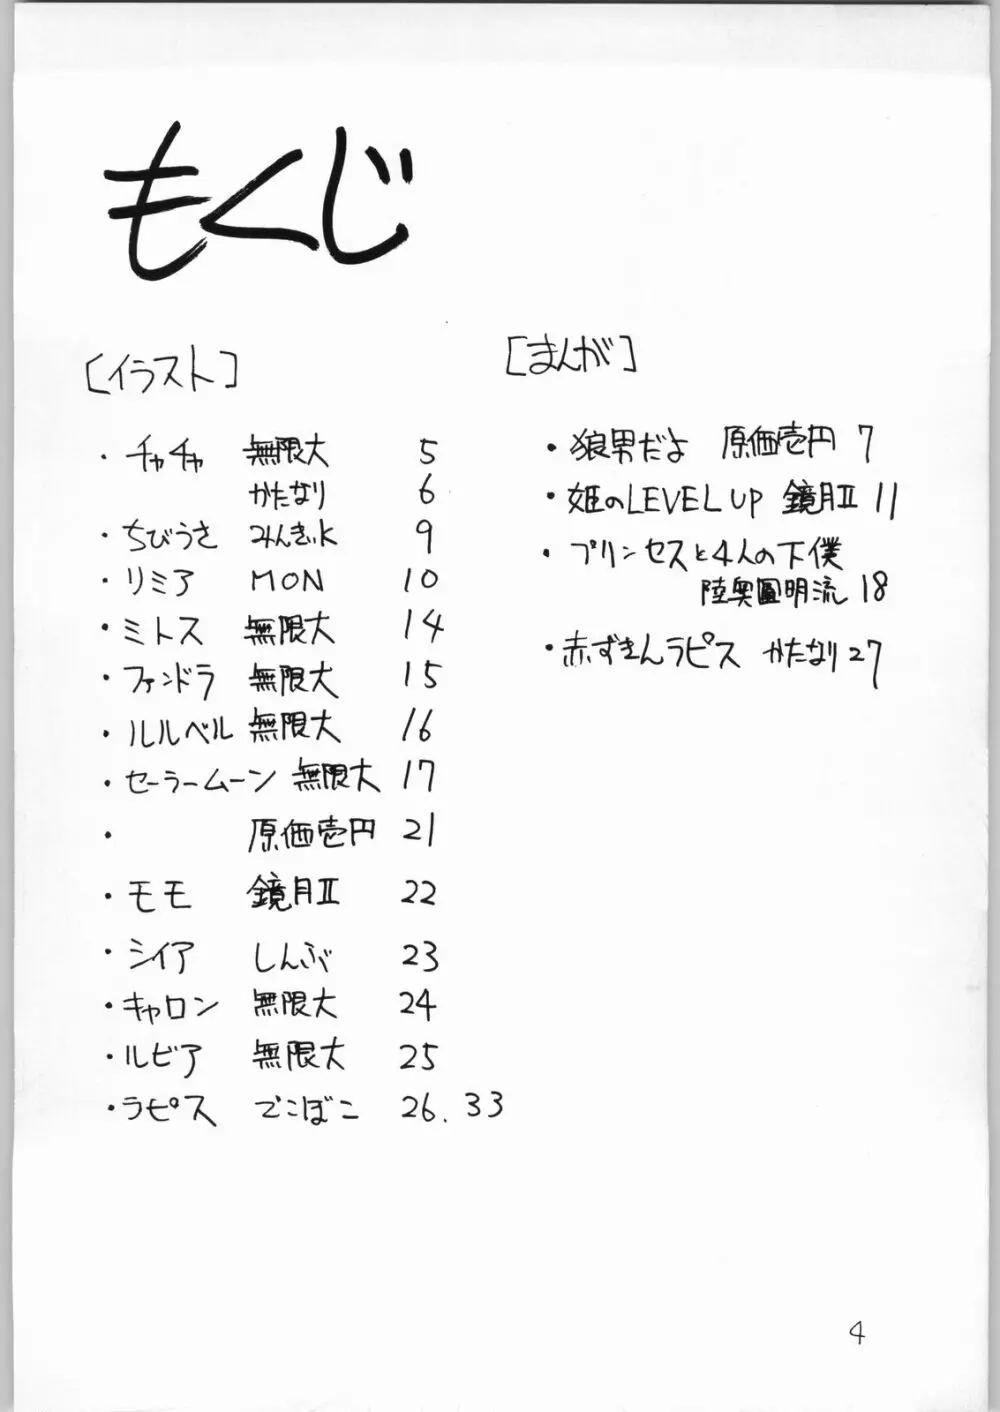 もくじ
[イラスト]
・チャチャ 無限大 5
かたなり 6
・ちびうさ みんきぃK 9
・リミア MON 10
・ミトス 無限大 14
・ファンドラ 無限大 15
・ルルベル 無限大 16
・セーラームーン 無限大 17
・ 原価壱円 21
・モモ 鏡月II 22
・シイア しんぶ 23
・キャロン 無限大 24
・ルビア 無限大 25
・ラピス でこぼこ 26.33
[まんが]
・狼男だよ 原価壱円 7
・姫のLEVEL UP 鏡月II 11
・プリンセスと4人の下僕
陸奥圓明流 18
・赤ずきんラピス かたなり 27
4